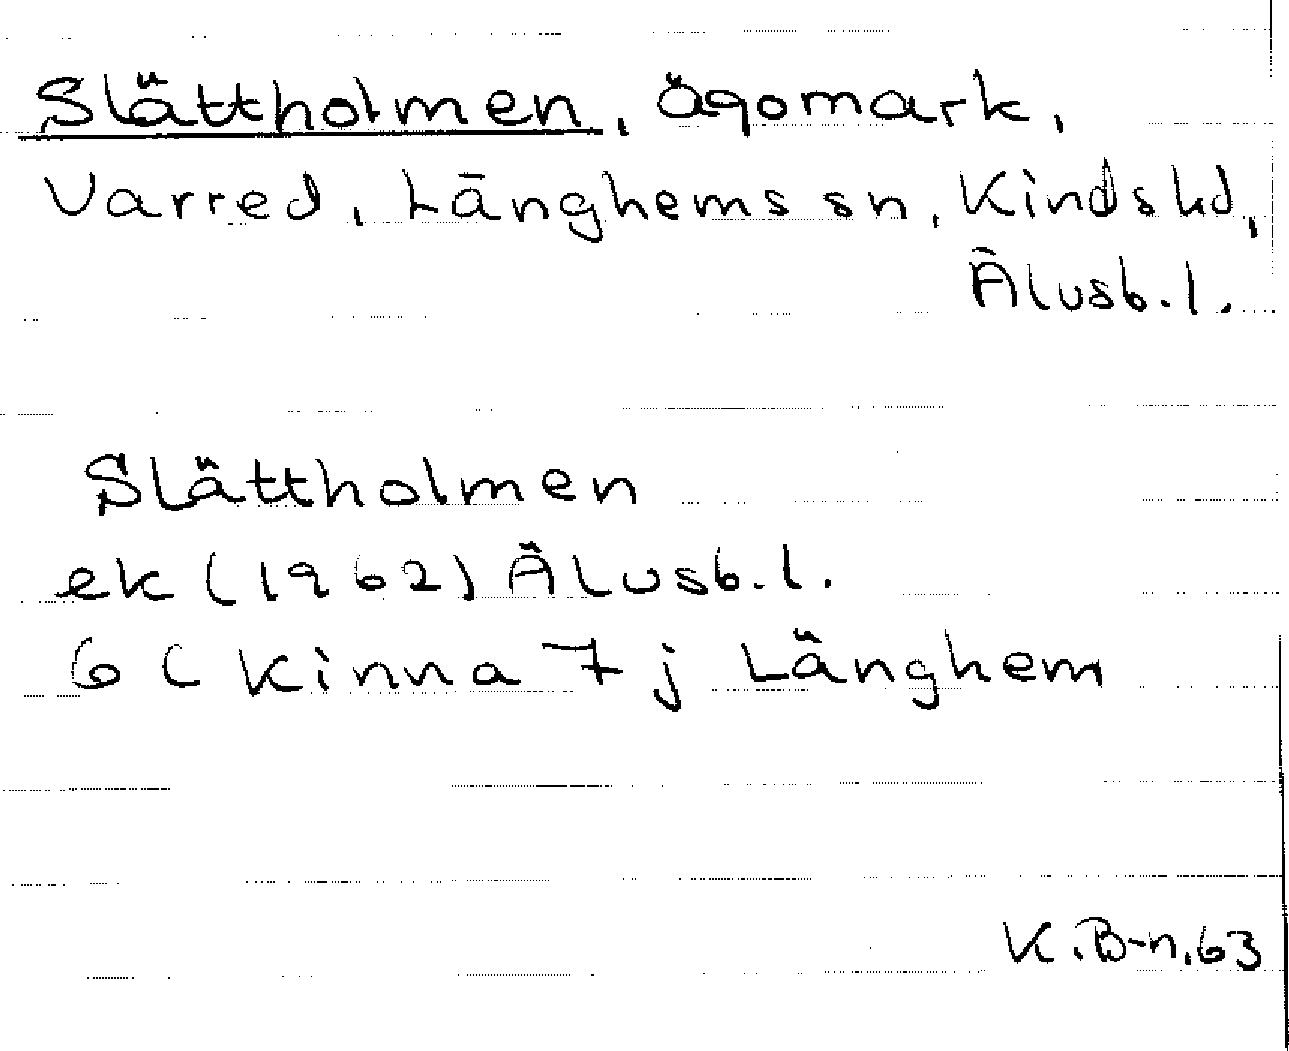 Slättholmen, ägomark,
Varred, Länghems sn, Kinds hd,
Älvsb. l.
Slättholmen
ek (1962) Älvsb. l.
6 C Kinna 7 j Länghem
K.B-n.63